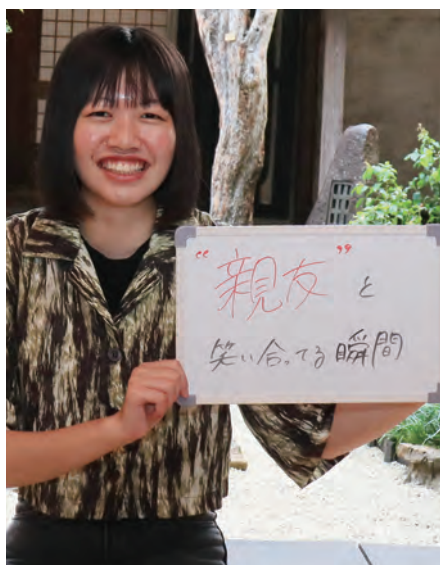 “親友”と
笑い合ってる瞬間